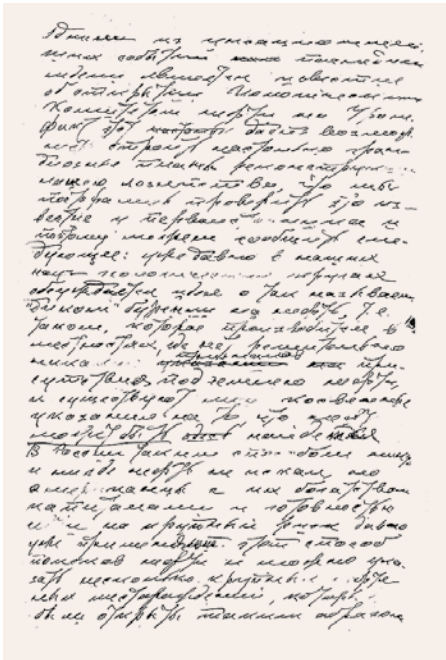 Одним из
ших событий последней
недели является известие
об открытии
Комитетом нефти на Урале.
факт этот дает возмож
ность строить настолько гран-
диозные планы реконструкции
нашего хозяйства, что мы
постарались проверить это из-
вестие и
потому можем сообщить сле-
дующее: уже давно в наших
журналах
обсуждается идея о так называем
"диком" бурении на нефть, т.е.
таком, которое производится в
местностях, где нет решительно
никаких признаков при-
сутствия подземного нефти,
и существуют лишь косвенные
указания на то, что нефть
может быть найдена
В России таким способом никто
и нигде нефть не искал, но
американцы с их богатством
капиталами и готовностью
идти на крупный риск давно
уже применяют этот способ
поисков нефти и можно ука-
зать несколько крупных
ных месторождений, которые
были открыты таким образом